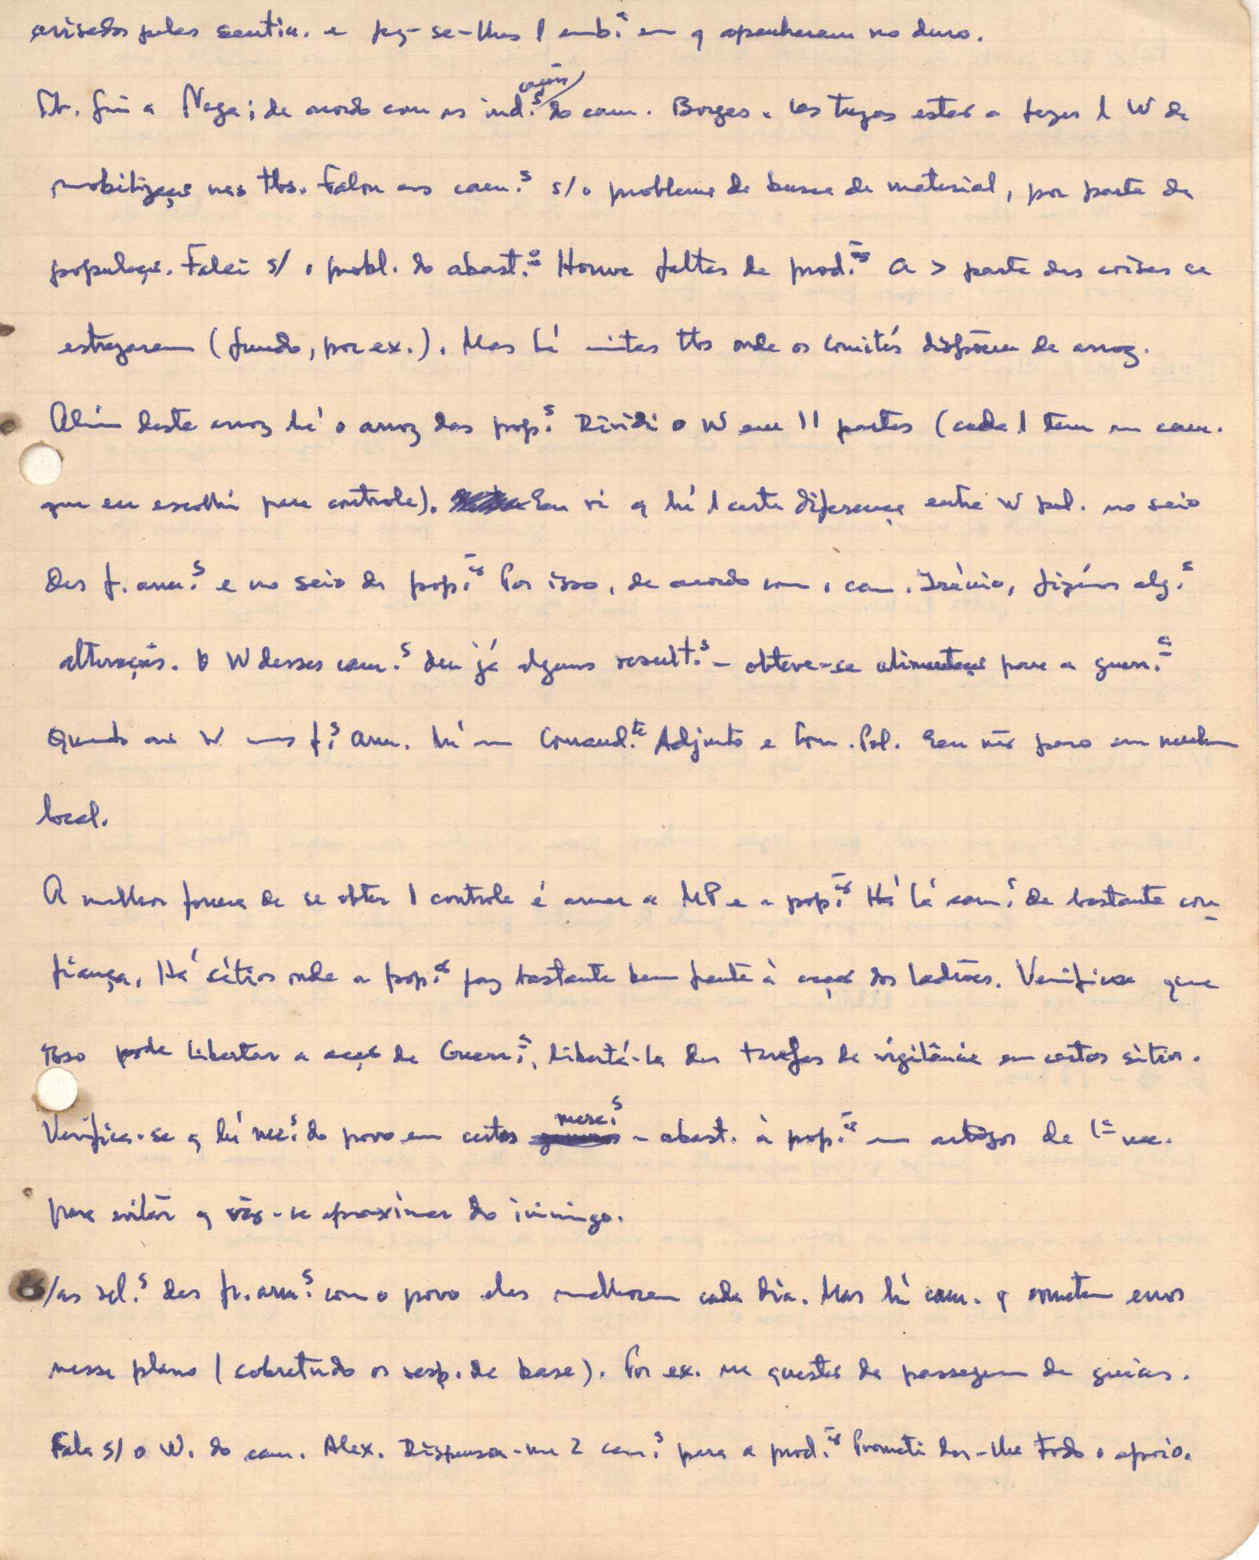 avisados pelas sentin. e fez-se-lhes 1 emb.ª em q apanharam no duro.
Tb. fui a Naga; de acordo com as ind.s do cam. Borges.
ções
os tugas estão a fazer 1 W de
mobilização nas tbs. Falou aos cam.s s/ o problema da busca de material, por parte da
população. Falei s/ o probl. do abast.o Houve faltas de prod.ão A > parte das coisas se
estragaram (fundo, por ex.). Mas há mitas tbs onde os Comités dispõem de arroz.
Além deste arroz há o arroz das pop.s Dividi o W em 11 partes (cada 1 tem um cam.
que eu escolhi para controle). Eu vi q há 1 certa diferença entre W pol. no seio
das f. arm.s e no seio da pop.ão Por isso, de acordo com o cam. Irénio, fizémos alg.s
alterações. O W desses cam.s deu já alguns result.s - obteve-se alimentação para a guerr.a
Quando ao W nas f.s arm. há um Comand.te Adjunto e Com. Pol. Eu não paro em nenhum
local.
A melhor forma de se obter 1 controle é armar a MP e a pop.ão Há lá cam.s de bastante con-
fiança. Há sítios onde a pop.ão faz bastante bem frente à acção dos ladrões. Verifica-se que
isso pode libertar a acção da Guerr.a, libertá-la das tarefas de vigilância em certos sítios.
merc.s
Verifica-se q há nec.s do povo em certos - abast. à pop.ão em artigos de 1ª nec.
para evitar q vão-se aproximar do inimigo.
S/as rel.s das fr. arm.s com o povo elas melhoram cada dia. Mas há cam. q cometem erros
nesse plano (sobretudo os resp. de base). Por ex. na questão da passagem de guias.
Fala s/ o W. do cam. Alex. Dispensou-me 2 cam.s para a prod.ão Prometi dar-lhe todo o apoio.